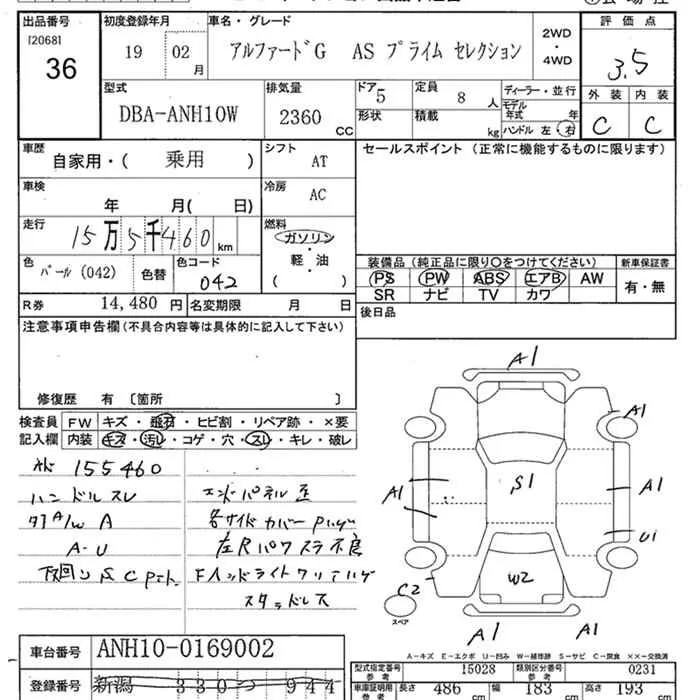 出品番号 初度登録年月 車名・グレード 2WD・4WD 評価点
[2068]
36
19 02 月
アルファードG AS プライム セレクション
3.5
型式 排気量 ドア 5 定員 8 人 ディーラー・並行 外装 内装
DBA-ANH10W 2360 CC 形状 積載 kg モデル年式 年 C C
ハンドル 左・右
車歴 自家用・( 乗用 ) シフト AT セールスポイント (正常に機能するものに限ります)
車検 年 月( 日) 冷房 AC
走行 15万5千460 km 燃料 ガソリン・軽・油 ( )
色 パール(042) 色替 色コード 042
装備品 (純正品に限り〇をつけてください) 新車保証書
PS PW ABS エアB AW 有・無
SR ナビ TV カワ
R券 14,480 円 名変期限 月 日 後日品
注意事項申告欄 (不具合内容等は具体的に記入して下さい)
修復歴 有 〔箇所 〕
検査員記入欄 FW キズ・飛石・ヒビ割・リペア跡・×要
内装 キズ・汚レ・コゲ・穴・スレ・キレ・破レ
155460
ハンドルスレ エンドパネル歪
A/W A 各サイドカバー
A-U 左Rパワスラ不良
下回り S C
スタッドレス
A1
A1
A1 S1 A1
U1
W2
C2
スペア
A1 A1
A-キズ E-エクボ U-凹み W-補修跡 S-サビ C-腐食 ××-交換済
車台番号 ANH10-0169002
登録番号 新潟 330 944
型式指定番号 参考 15028 類別区分番号 参考 0231
車庫証明用 参考 長さ 486 cm 幅 183 cm 高さ 193 cm